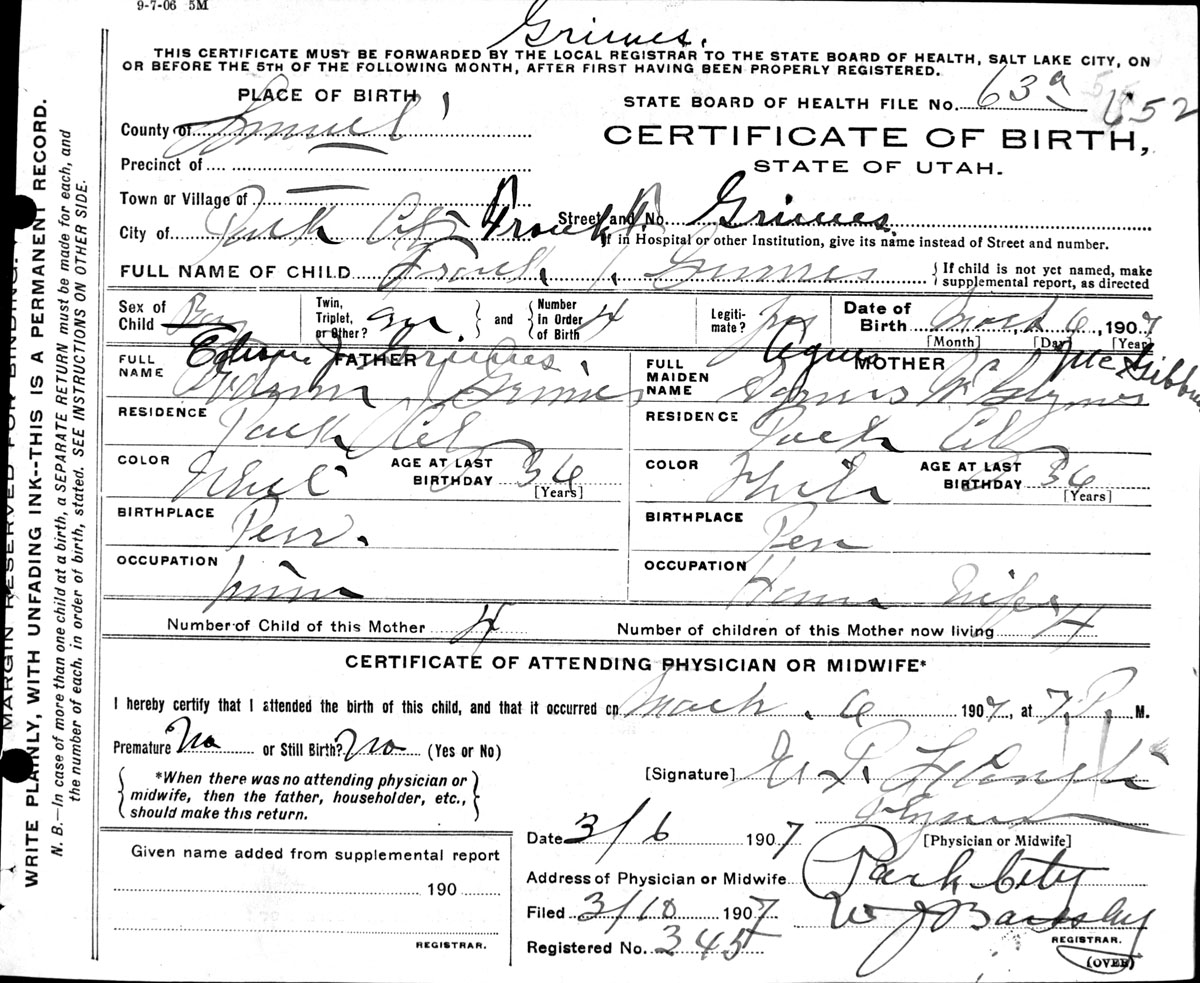 9-7-06 5M
Grimes.
THIS CERTIFICATE MUST BE FORWARDED BY THE LOCAL REGISTRAR TO THE STATE BOARD OF HEALTH, SALT LAKE CITY, ON
OR BEFORE THE 5TH OF THE FOLLOWING MONTH, AFTER FIRST HAVING BEEN PROPERLY REGISTERED.
PLACE OF BIRTH
STATE BOARD OF HEALTH FILE No. 63a 652
County of Summit
CERTIFICATE OF BIRTH,
STATE OF UTAH.
Precinct of
Town or Village of
Frank Street and No. Grimes.
City of Park City
If in Hospital or other Institution, give its name instead of Street and number.
FULL NAME OF CHILD Frank J. Grimes
If child is not yet named, make supplemental report, as directed
Sex of Child Boy
Twin, Triplet, or Other? and Number In Order of Birth 4
Legiti- mate? yes
Date of Birth March 6, 1907
[Month] [Day] [Year]
FATHER
Edison J. Grimes.
FULL NAME J Grimes
RESIDENCE Park City
COLOR White
AGE AT LAST BIRTHDAY 36 [Years]
BIRTHPLACE Penn.
OCCUPATION miner
MOTHER
Agnes McGibbon
FULL MAIDEN NAME Agnes
RESIDENCE Park City
COLOR White
AGE AT LAST BIRTHDAY 36 [Years]
BIRTHPLACE Pen
OCCUPATION House Wife
Number of Child of this Mother 4
Number of children of this Mother now living 4
CERTIFICATE OF ATTENDING PHYSICIAN OR MIDWIFE*
I hereby certify that I attended the birth of this child, and that it occurred on March. 6 1907, at 7 P. M.
Premature No or Still Birth? No (Yes or No)
*When there was no attending physician or
midwife, then the father, householder, etc.,
should make this return.
[Signature]
[Physician or Midwife]
Date 3/6 1907
Address of Physician or Midwife Park City
Filed 3/10 1907 W J Bardsley
REGISTRAR.
Registered No. 345
(OVER)
Given name added from supplemental report
190
REGISTRAR.
MARGIN RESERVED FOR BINDING.
WRITE PLAINLY, WITH UNFADING INK--THIS IS A PERMANENT RECORD.
N. B.—In case of more than one child at a birth, a SEPARATE RETURN must be made for each, and
the number of each, in order of birth, stated. SEE INSTRUCTIONS ON OTHER SIDE.